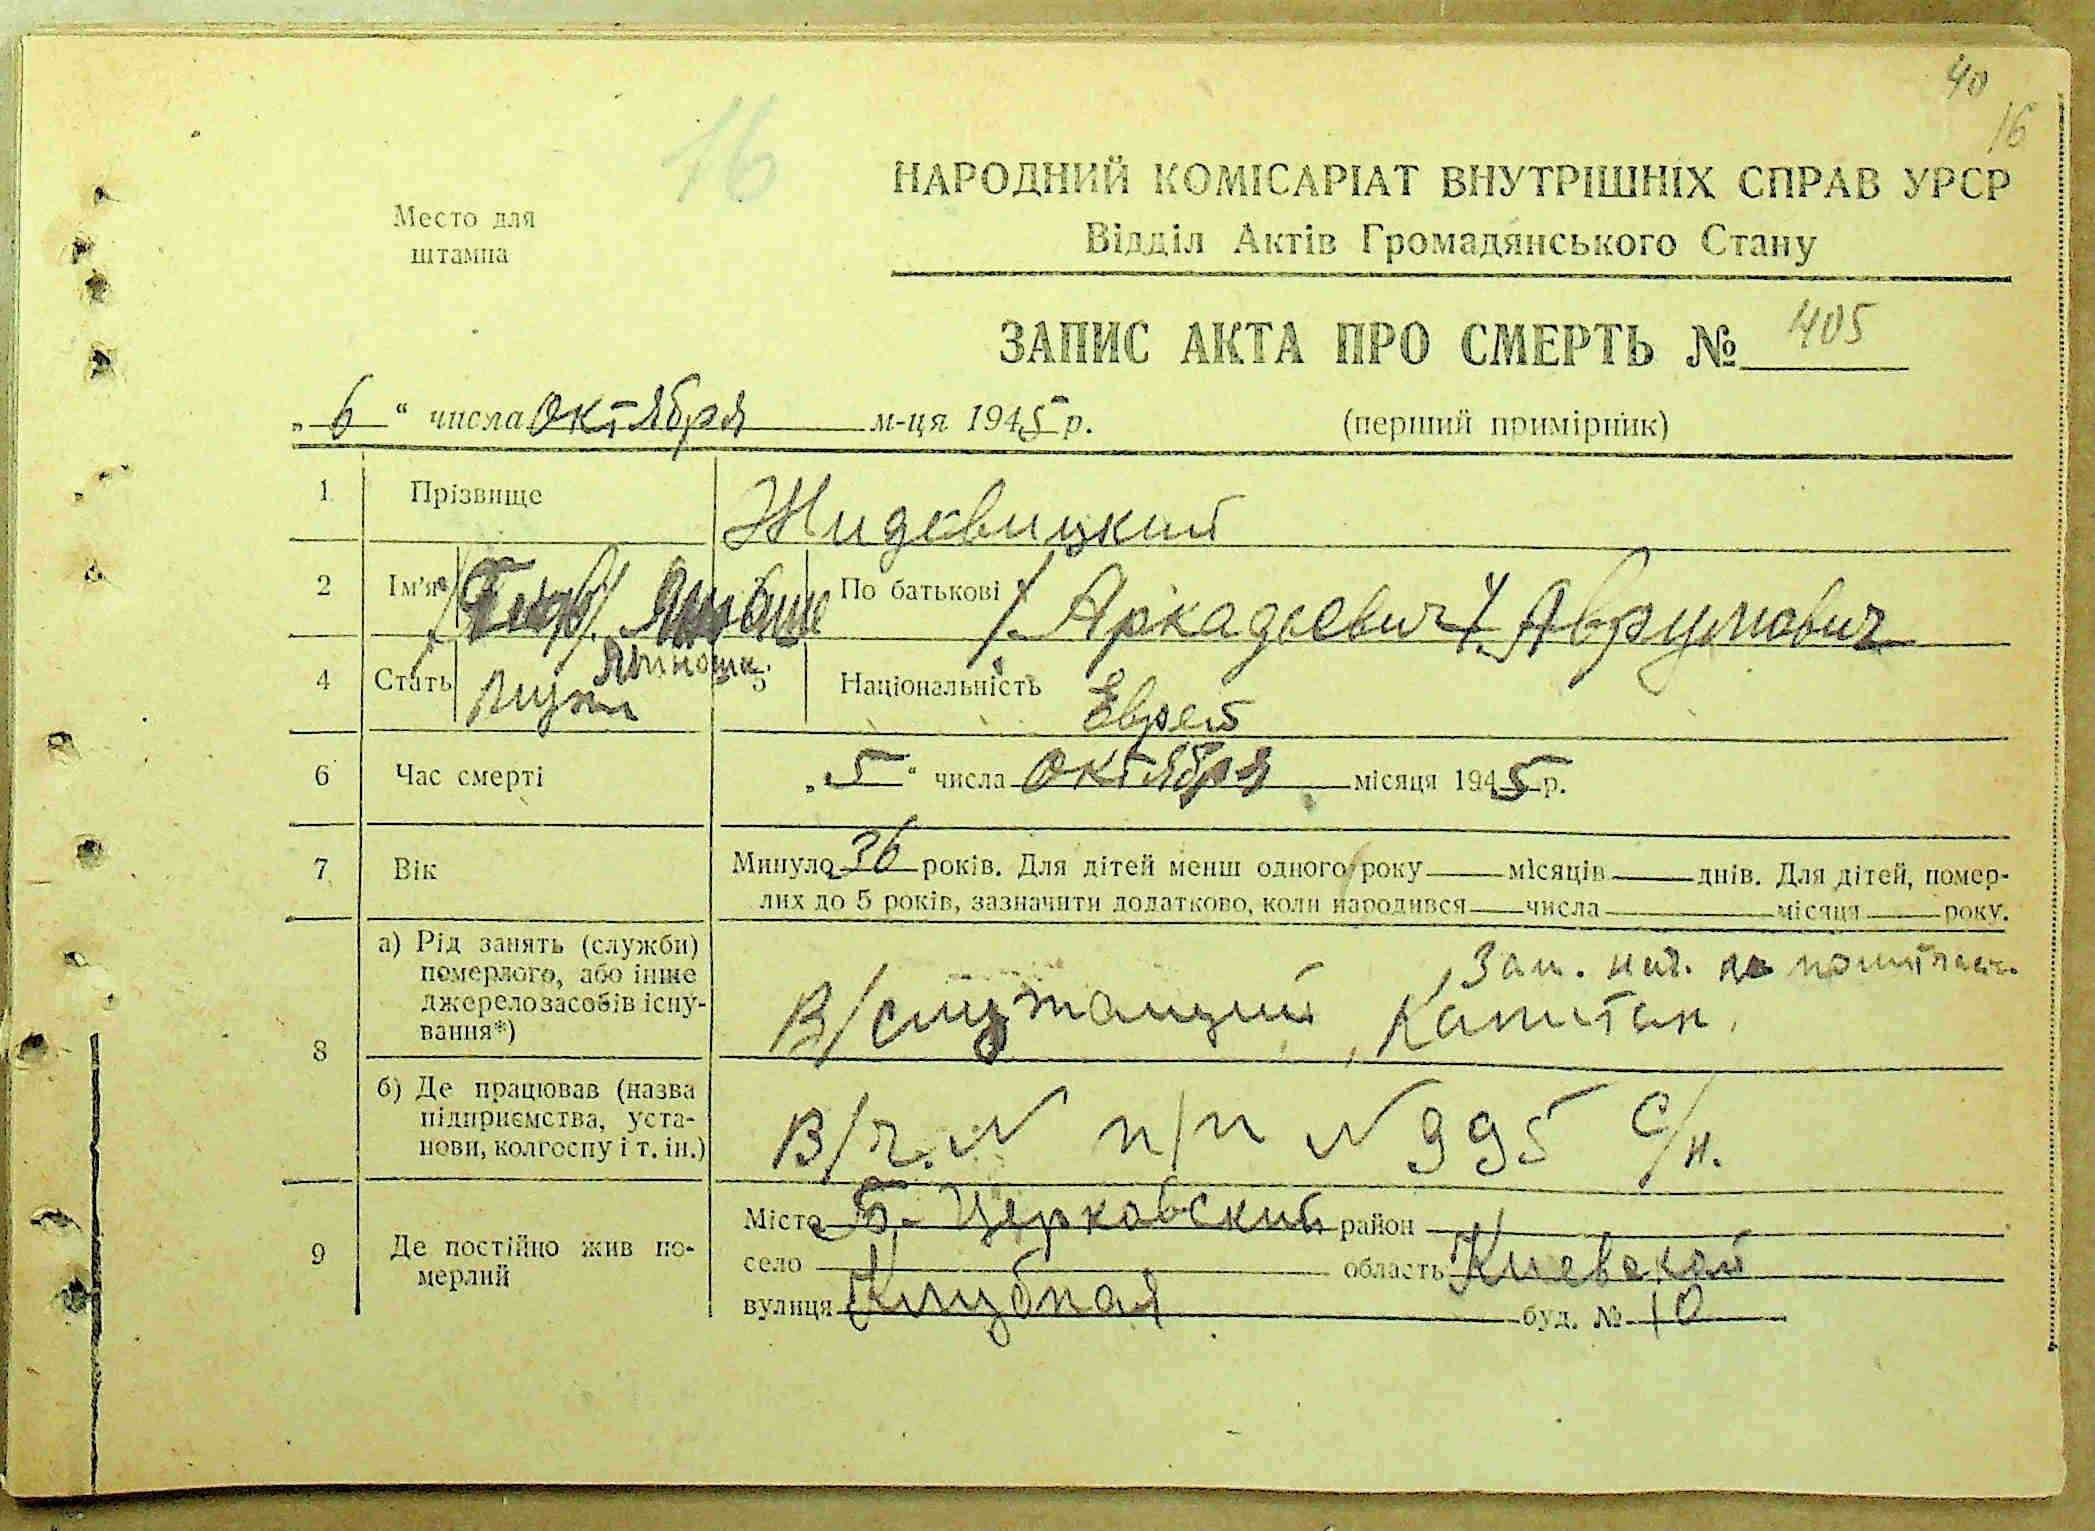 40
16
16
Место для
штампа
НАРОДНИЙ КОМІСАРІАТ ВНУТРІШНІХ СПРАВ УРСР
Відділ Актів Громадянського Стану
ЗАПИС АКТА ПРО СМЕРТЬ № 405
„6“ числа октября м-ця 1945 р.
(перший примірник)
1 Прізвище Жидовицкий
2 Ім'я По батькові /Аркадьевич/ Аврумович
4 Стать муж 5 Національність Еврей
6 Час смерті „5“ числа октября місяця 1945 р.
7 Вік Минуло 36 років. Для дітей менш одного року місяців днів. Для дітей, помер-
лих до 5 років, зазначити додатково, коли народився числа місяця року.
8
а) Рід занять (служби)
померлого, або інше
джерело засобів існу-
вання*)
В/служащий, Капитан,
Зам. нач. по
б) Де працював (назва
підприємства, уста-
нови, колгоспу і т. ін.)
В/ч. № п/п № 995 с/н.
9 Де постійно жив по-
мерлий
Місто Б-Церковский район
село область Киевской
вулиця Клубная буд. № 10